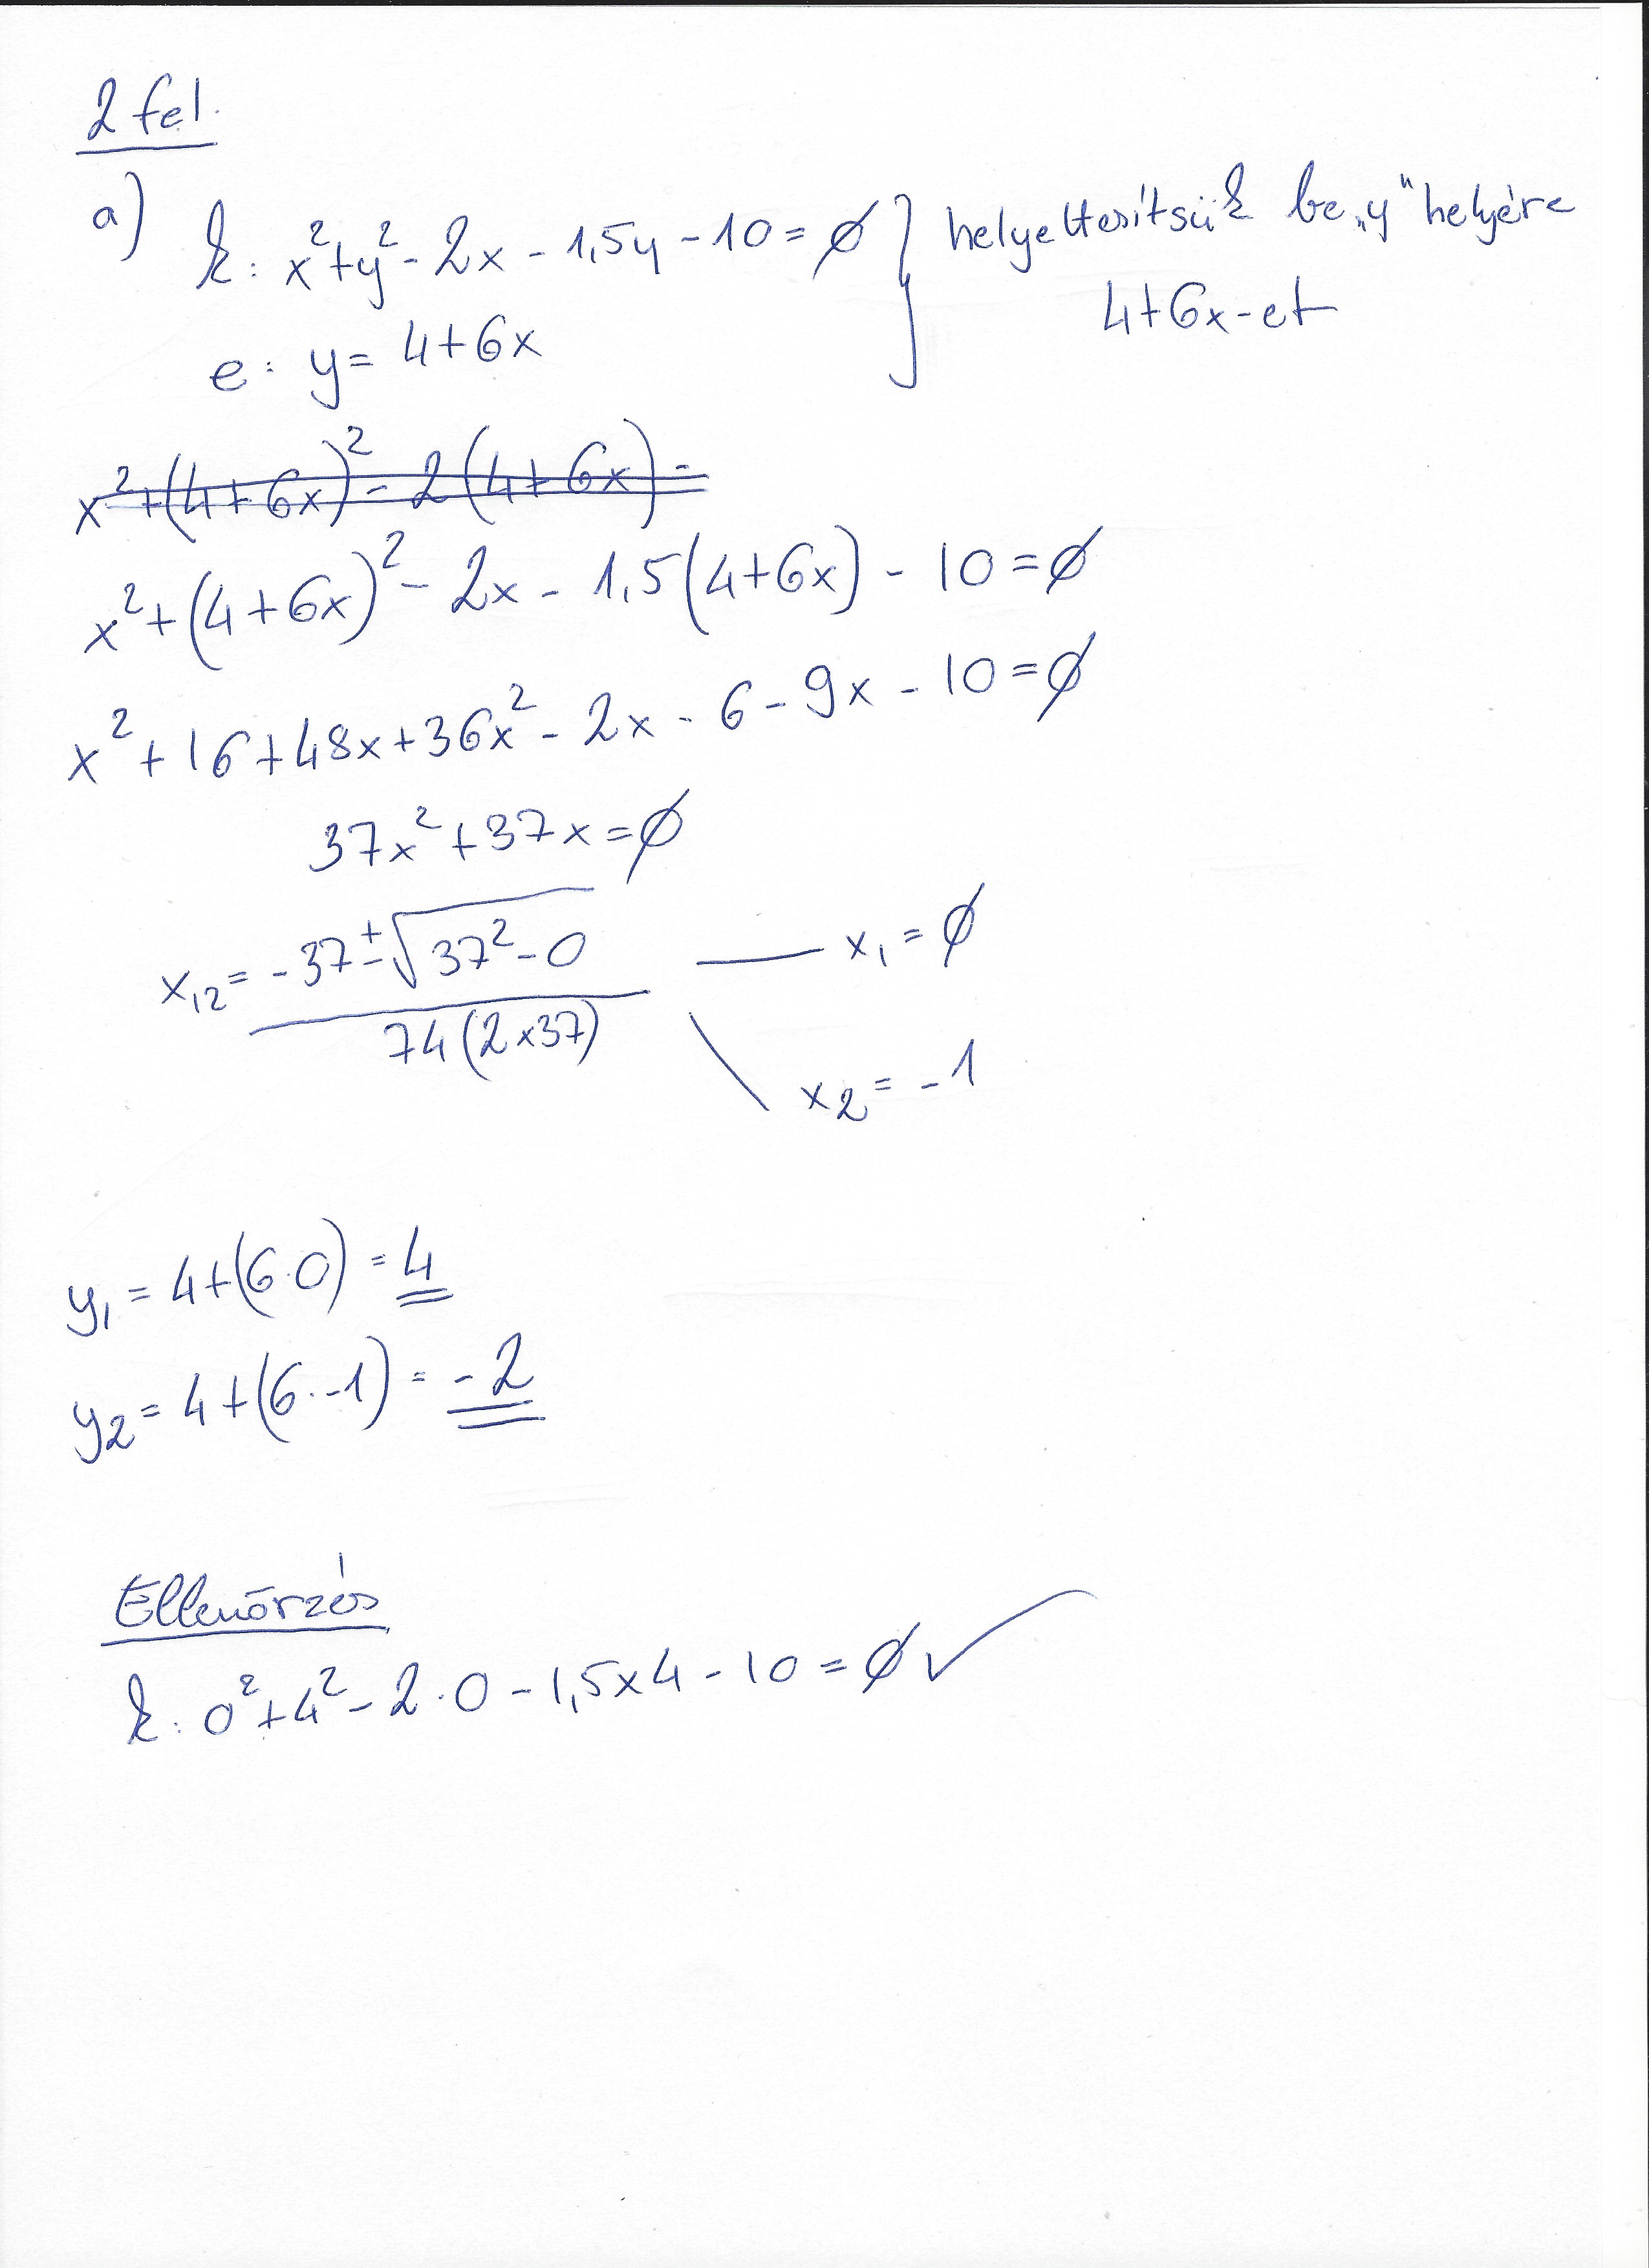 2 fel.
a) k: x²+y²-2x-1,5y-10=∅ } helyettesítsük be „y" helyére
4+6x-et
e: y=4+6x
x²+(4+6x)²-2(4+6x)-
x²+(4+6x)²-2x-1,5(4+6x)-10=∅
x²+16+48x+36x²-2x-6-9x-10=∅
37x²+37x=∅
x₁₂= -37±√37²-0 / 74(2x37) — x₁=∅
\ x₂=-1
y₁=4+(6·0)=4
y₂=4+(6·-1)=-2
Ellenőrzés
k: 0²+4²-2·0-1,5x4-10=∅ ✓